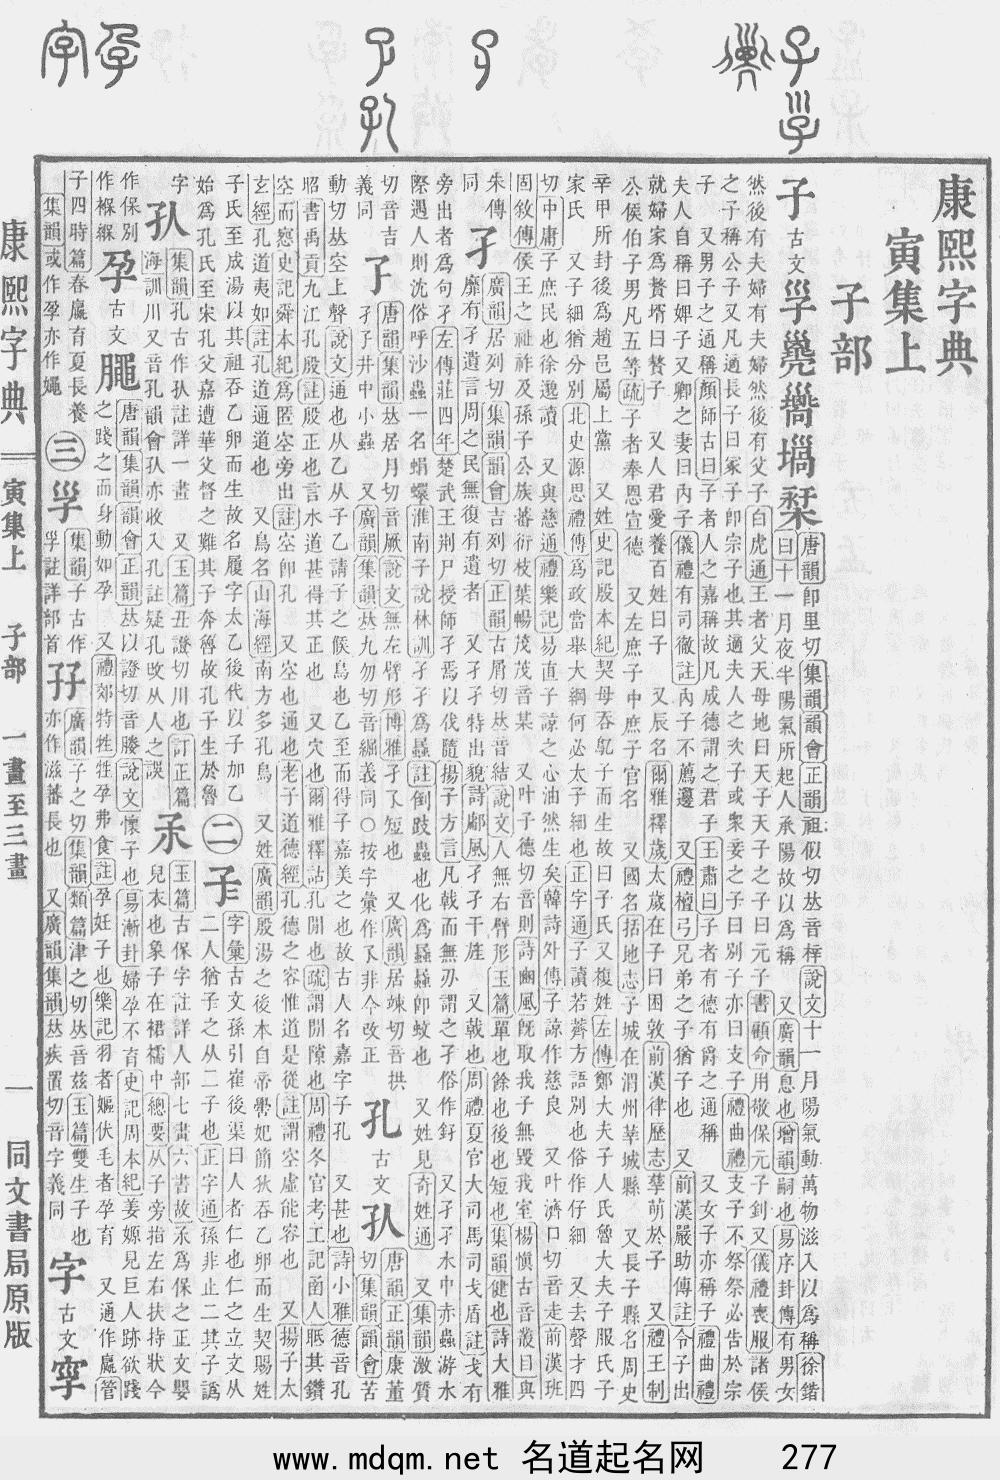 康熙字典
寅集上
子部
子古文
唐韻卽里切集韻韻會正韻祖似切𠀤音梓說文十一月陽氣動萬物滋入以爲稱徐鍇
曰十一月夜半陽氣所起人承陽故以爲稱 又廣韻息也增韻嗣也易序卦傳有男女
然後有夫婦有夫婦然後有父子白虎通王者父天母地曰天子天子之子曰元子書顧命用敬保元子釗又儀禮喪服諸侯
之子稱公子又凡適長子曰冢子卽宗子也其適夫人之次子或衆妾之子曰別子亦曰支子禮曲禮支子不祭祭必告於宗
子 又男子之通稱顏師古曰子者人之嘉稱故凡成德謂之君子王肅曰子者有德有爵之通稱 又女子亦稱子禮曲禮
夫人自稱曰婢子又卿之妻曰內子儀禮有司徹註內子不薦籩 又禮檀弓兄弟之子猶子也 又前漢嚴助傳註令子出
就婦家爲贅壻曰贅子 又人君愛養百姓曰子 又辰名爾雅釋歲太歲在子曰困敦前漢律歷志孳萌於子 又禮王制
公侯伯子男凡五等疏子者奉恩宣德 又左庶子中庶子官名 又國名括地志子城在渭州莘城縣 又長子縣名周史
辛甲所封後爲趙邑屬上黨 又姓史記殷本紀契母吞鳦子而生故曰子氏又複姓左傳鄭大夫子人氏魯大夫子服氏子
家氏 又子細猶分別北史源思禮傳爲政當舉大綱何必太子細也正字通子讀若薺方語別也俗作仔細 又去聲才四
切中庸子庶民也徐邈讀 又與慈通禮樂記易直子諒之心油然生矣韓詩外傳子諒作慈良 又叶濟口切音走前漢班
固敘傳侯王之祉祚及孫子公族蕃衍枝葉暢茂茂音某 又叶子德切音則詩豳風旣取我子無毀我室楊愼古音叢目與
朱傳同
孑廣韻居列切集韻韻會吉列切正韻古屑切𠀤音結說文人無右臂形玉篇單也餘也後也短也集韻健也詩大雅
靡有孑遺言周之民無復有遺者 又孑孑特出貌詩鄘風孑孑干旄 又戟也周禮夏官大司馬司戈盾註戈有
旁出者爲句孑左傳莊四年楚武王荆尸授師孑焉以伐隨揚子方言凡戟而無刃謂之孑俗作釨 又孑孑水中赤蟲游水
際遇人則沈俗呼沙蟲一名蜎蠉淮南子說林訓孑孑爲蟁註倒跂蟲也化爲蟁蟁卽蚊也 又姓見奇姓通 又集韻激質
切音吉義同
孒唐韻集韻𠀤居月切音厥說文無左臂形博雅孑孒短也 又廣韻居竦切音拱
孑孒井中小蟲 又廣韻集韻𠀤九勿切音䘿義同○按字彙作孓非今改正
孔古文
唐韻正韻康董切集韻韻會苦
動切𠀤空上聲說文通也从乙从子乙請子之候鳥也乙至而得子嘉美之也故古人名嘉字子孔 又甚也詩小雅德音孔
昭書禹貢九江孔殷註殷正也言水道甚得其正也 又穴也爾雅釋詁孔閒也疏謂閒隙也周禮冬官考工記函人眡其鑽
空而惌史記舜本紀爲匿空旁出註空卽孔 又空也通也老子道德經孔德之容惟道是從註謂空虛能容也 又揚子太
玄經孔道夷如註孔道通道也 又鳥名山海經南方多孔鳥 又姓廣韻殷湯之後本自帝嚳妃簡狄吞乙卵而生契賜姓
子氏至成湯以其祖吞乙卵而生故名履字太乙後代以子加乙
始爲孔氏至宋孔父嘉遭華父督之難其子奔魯故孔子生於魯
二
字彙古文孫引崔後渠曰人者仁也仁之立文从
二人猶子之从二子也正字通孫非止二其子譌
字
集韻孔古作註詳一畫 又玉篇丑證切川也訂正篇
海訓川又音孔韻會亦收入孔註疑孔攺从人之誤
玉篇古保字註詳人部七畫六書故𤓽爲保之正文嬰
兒衣也象子在裙襦中總要从子旁指左右扶持狀今
作保別作褓緥
孕古文
唐韻集韻韻會正韻𠀤以證切音媵說文懷子也易漸卦婦孕不育史記周本紀姜嫄見巨人跡欲踐
之踐之而身動如孕 又禮郊特牲牲孕弗食註孕妊子也樂記羽者嫗伏毛者孕育 又通作䕎管
子四時篇春䕎育夏長養
集韻或作孕亦作䋲
三
集韻子古作
註詳部首
孖廣韻子之切集韻類篇津之切𠀤音兹玉篇雙生子也
亦作滋蕃長也 又廣韻集韻𠀤疾置切音字義同
字古文
康熙字典 寅集上 子部 一畫至三畫 一 同文書局原版
www.mdqm.net 名道起名网 277